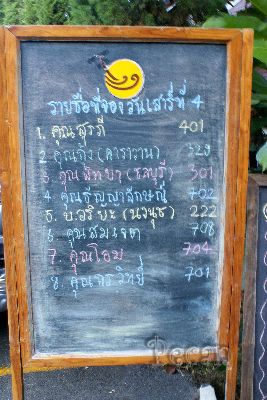 รายชื่อที่จองวันเสาร์ที่ 4
1. คุณสุรภี 401
2 คุณกิ่ง (คาราวาน)
3. คุณพิทยา (ธนบุรี) 301
4. คุณธัญญาลักษณ์ 702
5. บ.อริยะ (นงนุช) 222
6. คุณสมเจต 708
7. คุณโอม 704
8. คุณกรวิทย์ 701
Pecan